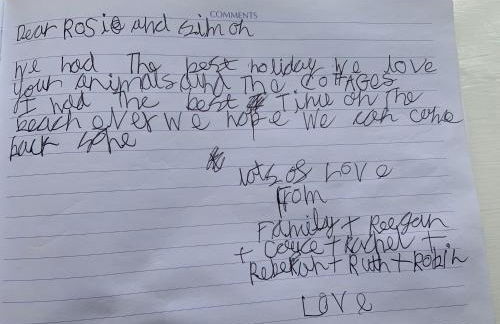 COMMENTS
Dear ROSie and Simon
we had The best holiday we love
your animals and The COTTAGES
I had the best Time on The
beach ever we hope we can come
back
lots of Love
From
Family + Reegan
+ + Rachel +
Rebekah + Ruth + Robin
Love